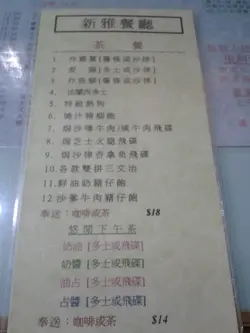 新雅餐廳
茶 餐
1. 炸雞翼 [薯條或沙律]
2. [多士或沙律]
3. [薯條或沙律]
4. 法蘭西多士
5. 特級熱狗
6. 燒汁豬腸飽
7. 焗沙嗲牛肉/咸牛肉飛碟
8. 焗芝士火腿飛碟
9. 焗沙律吞拿魚飛碟
10. 各款雙拼三文治
11. 鮮油奶豬仔飽
12. 沙爹牛肉豬仔飽
奉送: 咖啡或茶 $18
悠閒下午茶
奶油 [多士或飛碟]
奶醬 [多士或飛碟]
油占 [多士或飛碟]
占醬 [多士或飛碟]
奉送: 咖啡或茶 $14